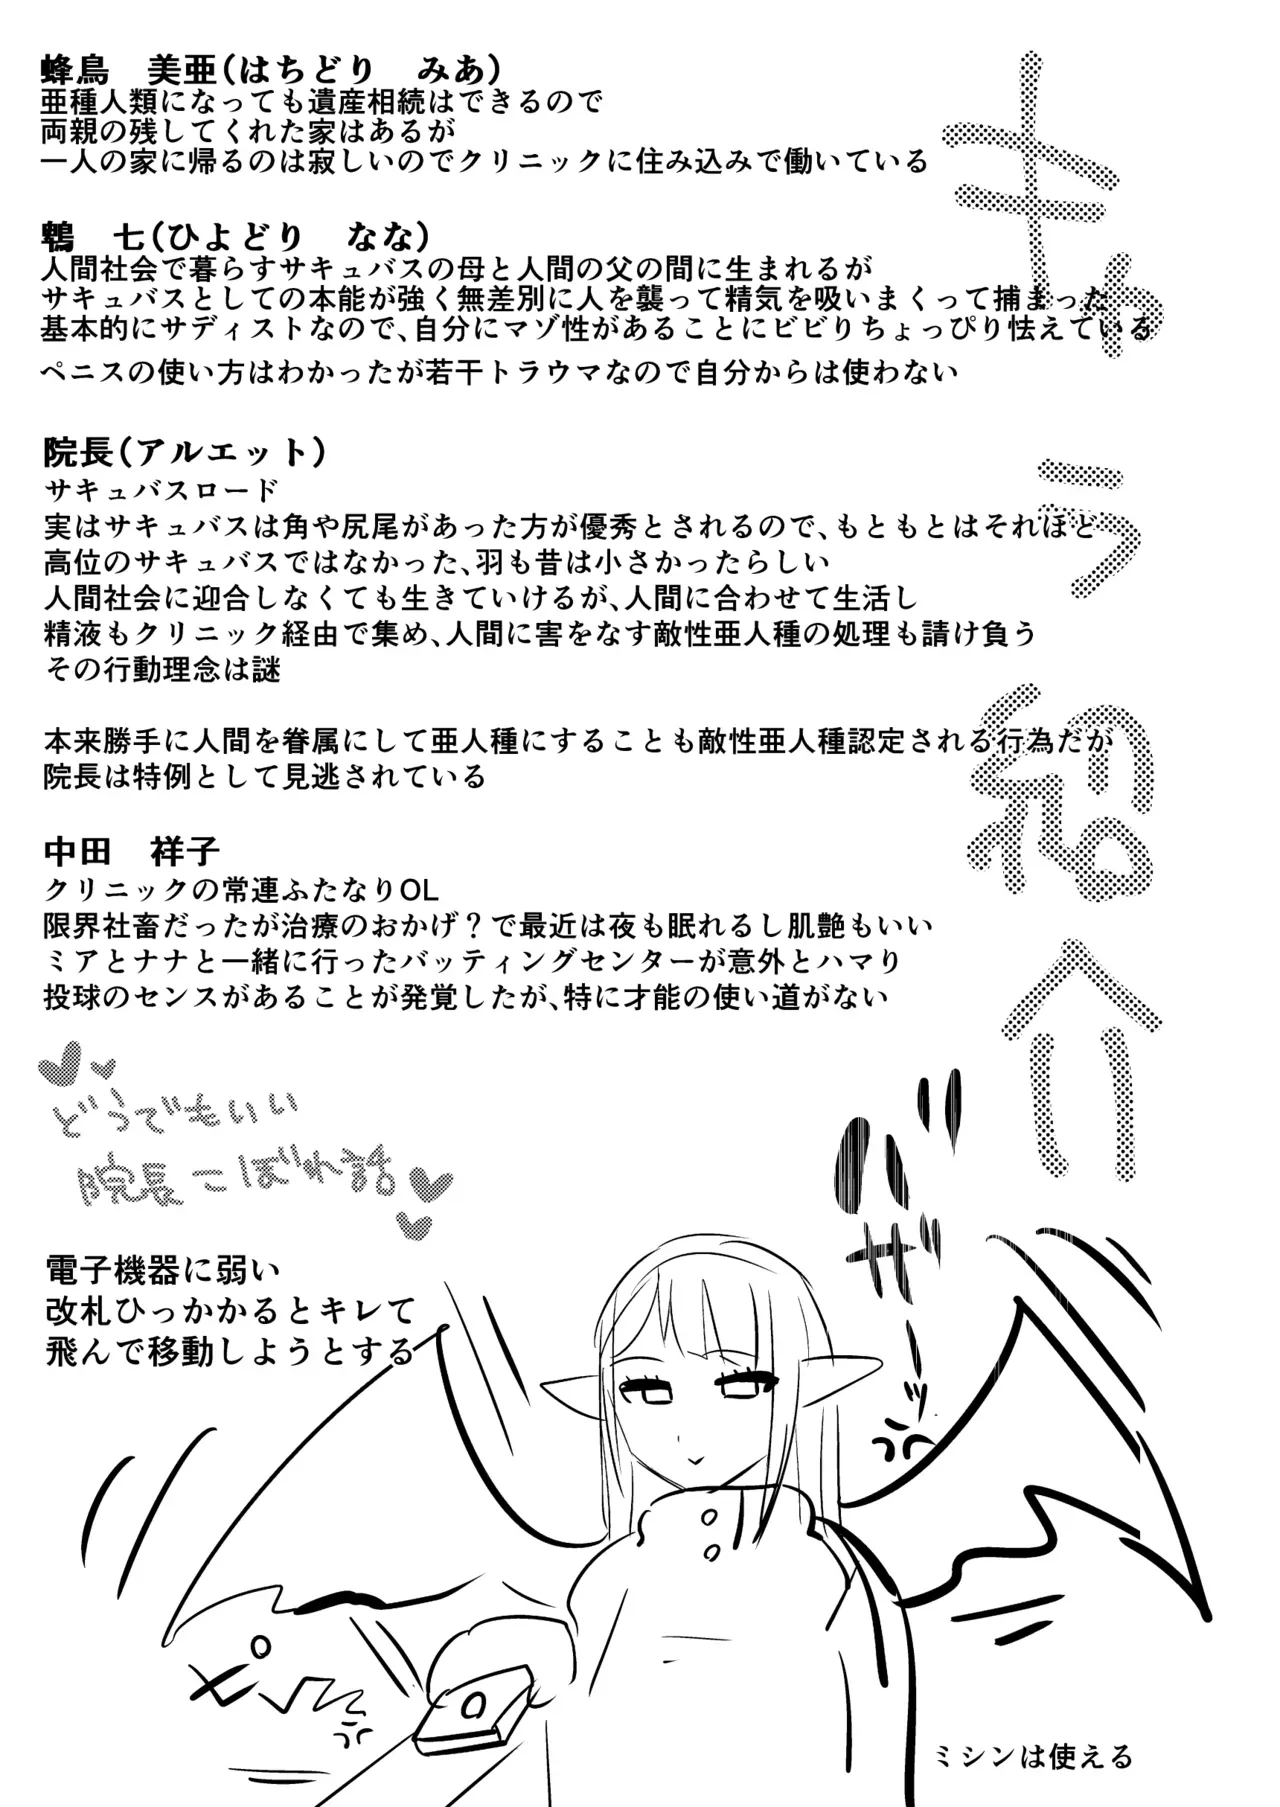 キャラ紹介
蜂鳥　美亜(はちどり　みあ)
亜種人類になっても遺産相続はできるので
両親の残してくれた家はあるが
一人の家に帰るのは寂しいのでクリニックに住み込みで働いている
鵯　七(ひよどり　なな)
人間社会で暮らすサキュバスの母と人間の父の間に生まれるが
サキュバスとしての本能が強く無差別に人を襲って精気を吸いまくって捕まった
基本的にサディストなので、自分にマゾ性があることにビビりちょっぴり怯えている
ペニスの使い方はわかったが若干トラウマなので自分からは使わない
院長(アルエット)
サキュバスロード
実はサキュバスは角や尻尾があった方が優秀とされるので、もともとはそれほど
高位のサキュバスではなかった、羽も昔は小さかったらしい
人間社会に迎合しなくても生きていけるが、人間に合わせて生活し
精液もクリニック経由で集め、人間に害をなす敵性亜人種の処理も請け負う
その行動理念は謎
本来勝手に人間を眷属にして亜人種にすることも敵性亜人種認定される行為だが
院長は特例として見逃されている
中田　祥子
クリニックの常連ふたなりOL
限界社畜だったが治療のおかげ？で最近は夜も眠れるし肌艶もいい
ミアとナナと一緒に行ったバッティングセンターが意外とハマり
投球のセンスがあることが発覚したが、特に才能の使い道がない
どうでもいい
院長こぼれ話
電子機器に弱い
改札ひっかかるとキレて
飛んで移動しようとする
バサーッ
ピッ
ミシンは使える